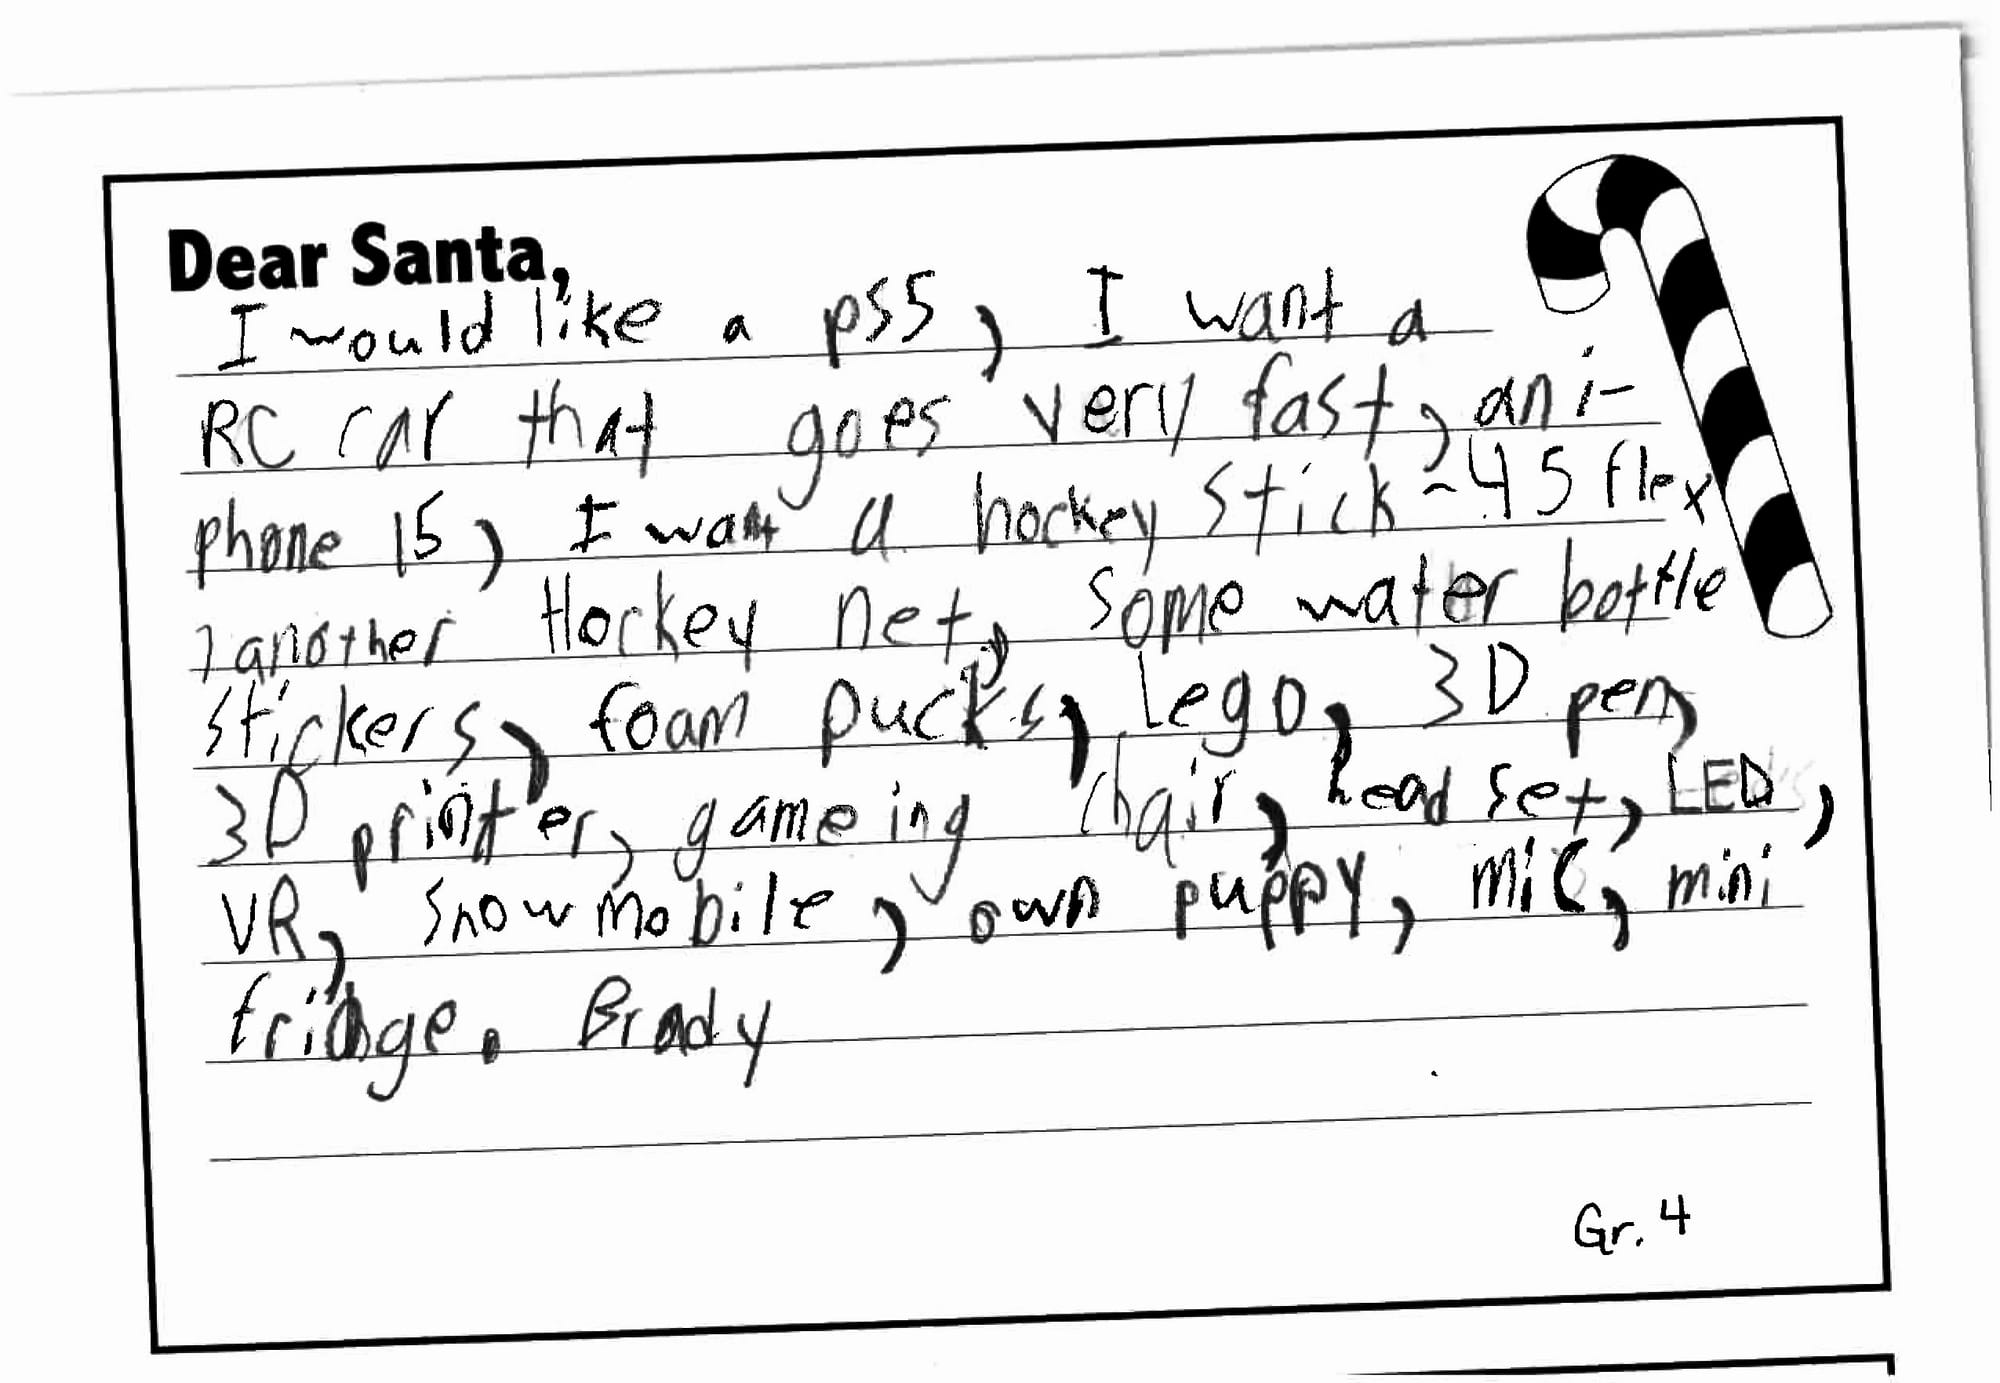 Dear Santa,
I would like a ps5, I want a
RC car that goes very fast, an i-
phone 15, I want a hockey stick - 45 flex
, another Hockey net, some water bottle
stickers, foam pucks, Lego, 3D pen,
3D printer, gameing chair, head set, LED,
VR, snowmobile, own puppy, mic, mini
fridge. Brady
Gr. 4